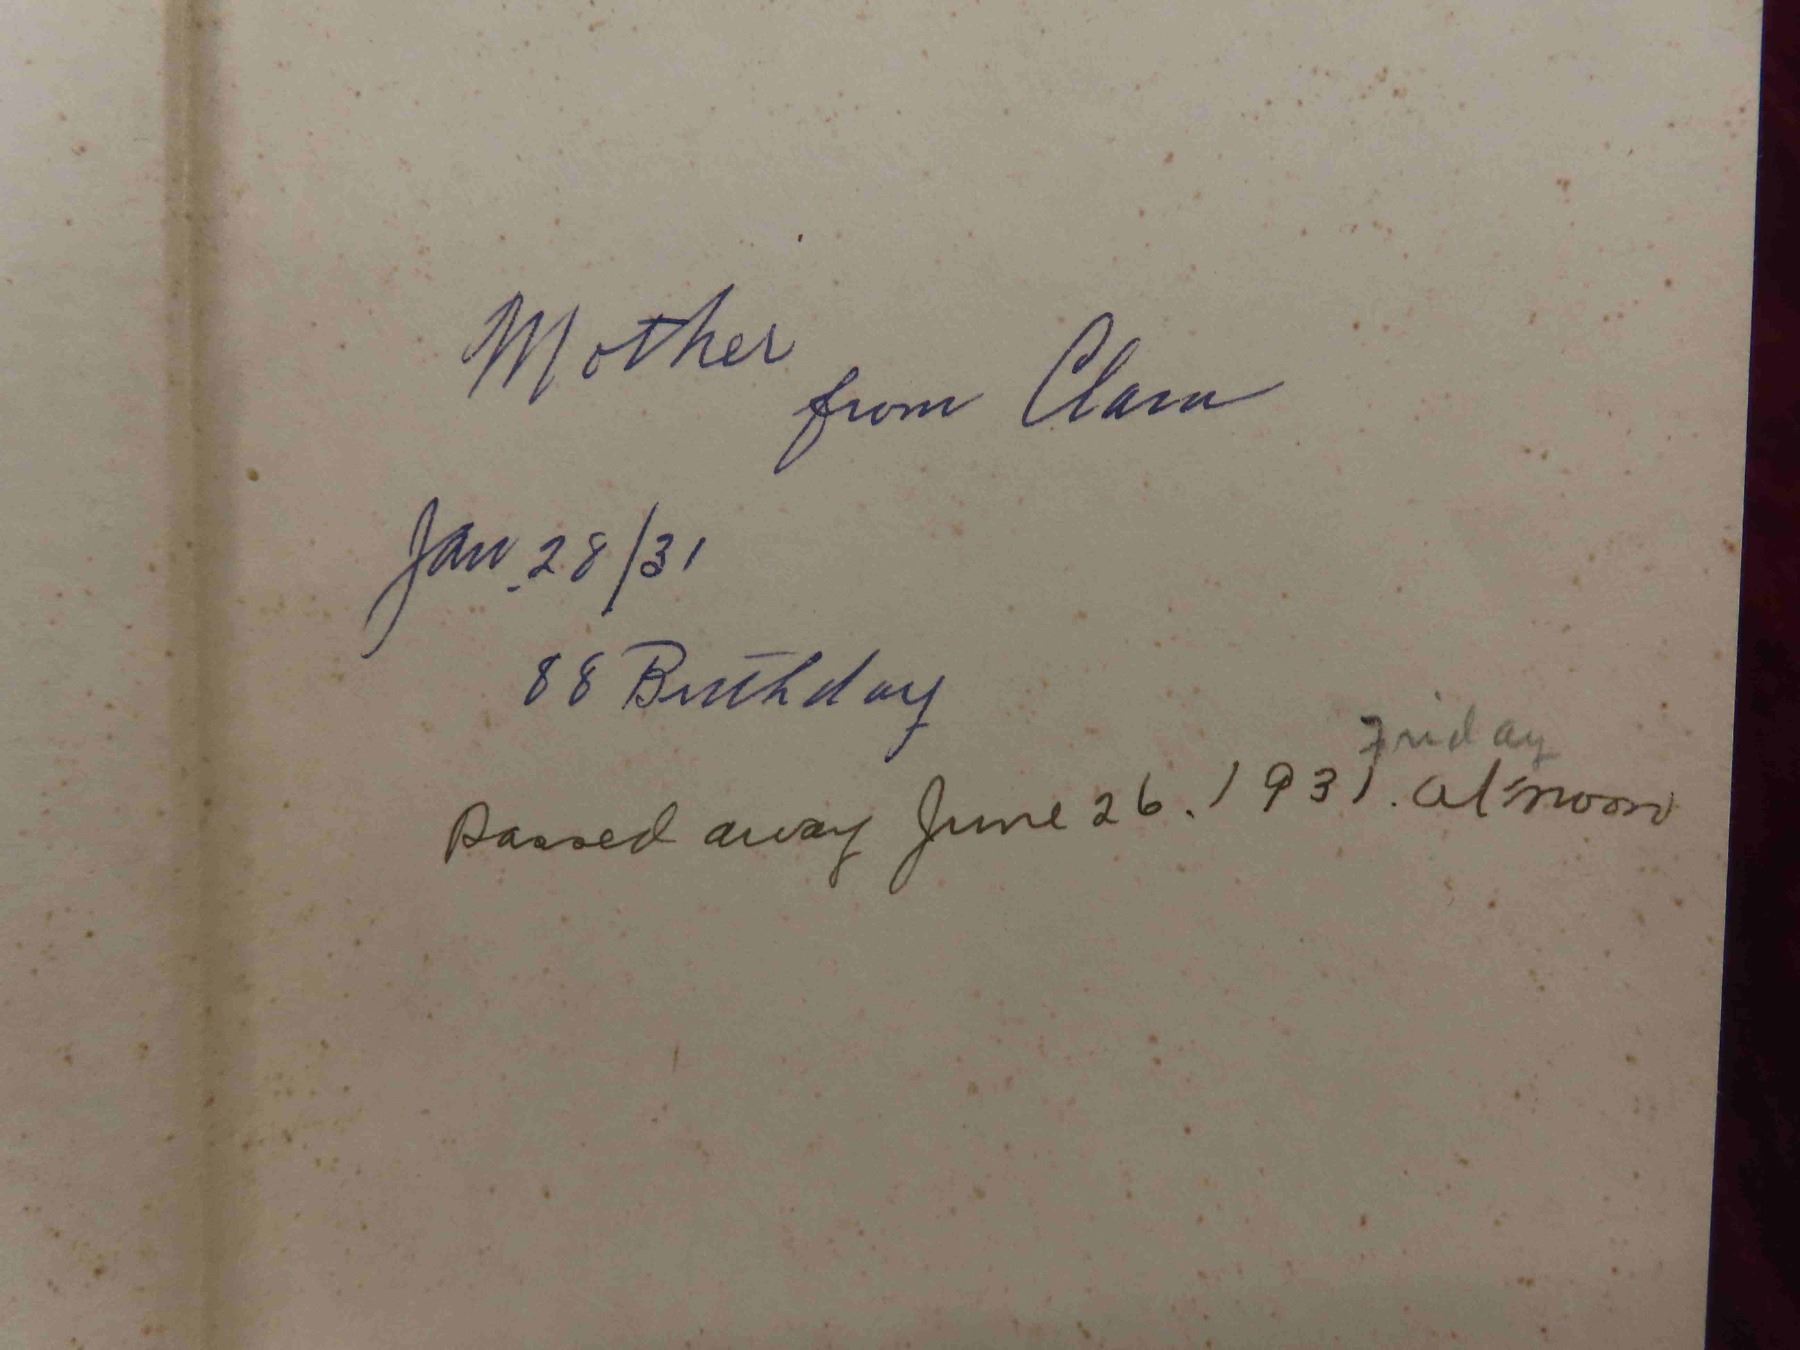 Mother
from Clara
Jan. 28/31
88 Birthday
Friday
Passed away June 26. 1931. at noon